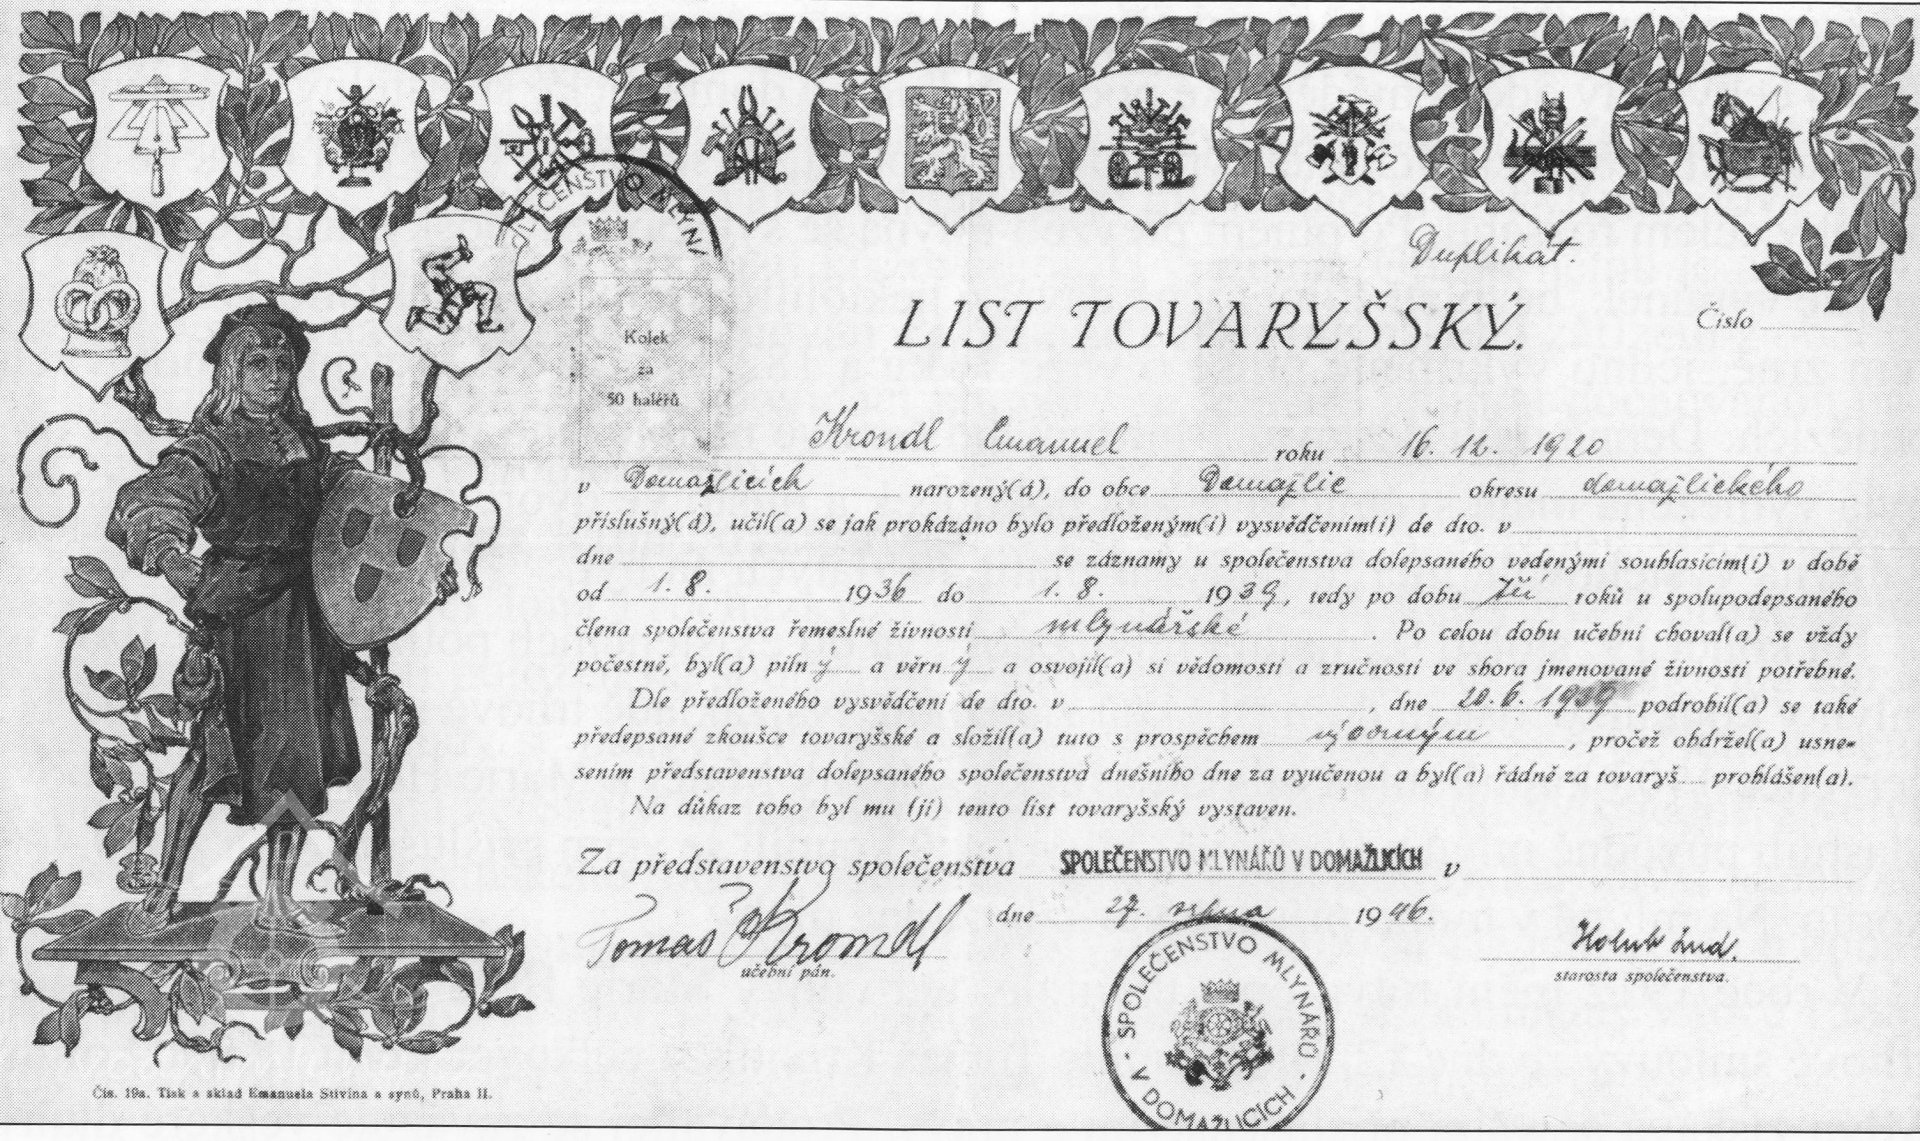 SPOLEČENSTVO MLYNÁ
Duplikát.
LIST TOVARYŠSKÝ.
Číslo
Kolek
za
50 haléřů
Krondl Emanuel roku 16. 12. 1920
v Domažlicích narozený(á), do obce Domažlic okresu domažlického
příslušný(á), učil(a) se jak prokázáno bylo předloženým(i) vysvědčením(i) de dto. v
dne se záznamy u společenstva dolepsaného vedenými souhlasícím(i) v době
od 1. 8. 1936 do 1. 8. 1939, tedy po dobu tří roků u spolupodepsaného
člena společenstva řemeslné živnosti mlynářské. Po celou dobu učební choval(a) se vždy
počestně, byl(a) pilný a věrný a osvojil(a) si vědomosti a zručnosti ve shora jmenované živnosti potřebné.
Dle předloženého vysvědčení de dto. v , dne 20. 6. 1939 podrobil(a) se také
předepsané zkoušce tovaryšské a složil(a) tuto s prospěchem výborným, pročež obdržel(a) usne-
sením představenstva dolepsaného společenstva dnešního dne za vyučenou a byl(a) řádně za tovaryš prohlášen(a).
Na důkaz toho byl mu (jí) tento list tovaryšský vystaven.
Za představenstvo společenstva SPOLEČENSTVO MLYNÁŘŮ V DOMAŽLICÍCH v
dne 27. srpna 1946.
Tomáš Krondl
učební pán.
Holub Lud.
starosta společenstva.
SPOLEČENSTVO MLYNÁŘŮ
V DOMAŽLICÍCH
Čís. 19a. Tisk a sklad Emanuela Stivína a synů, Praha II.